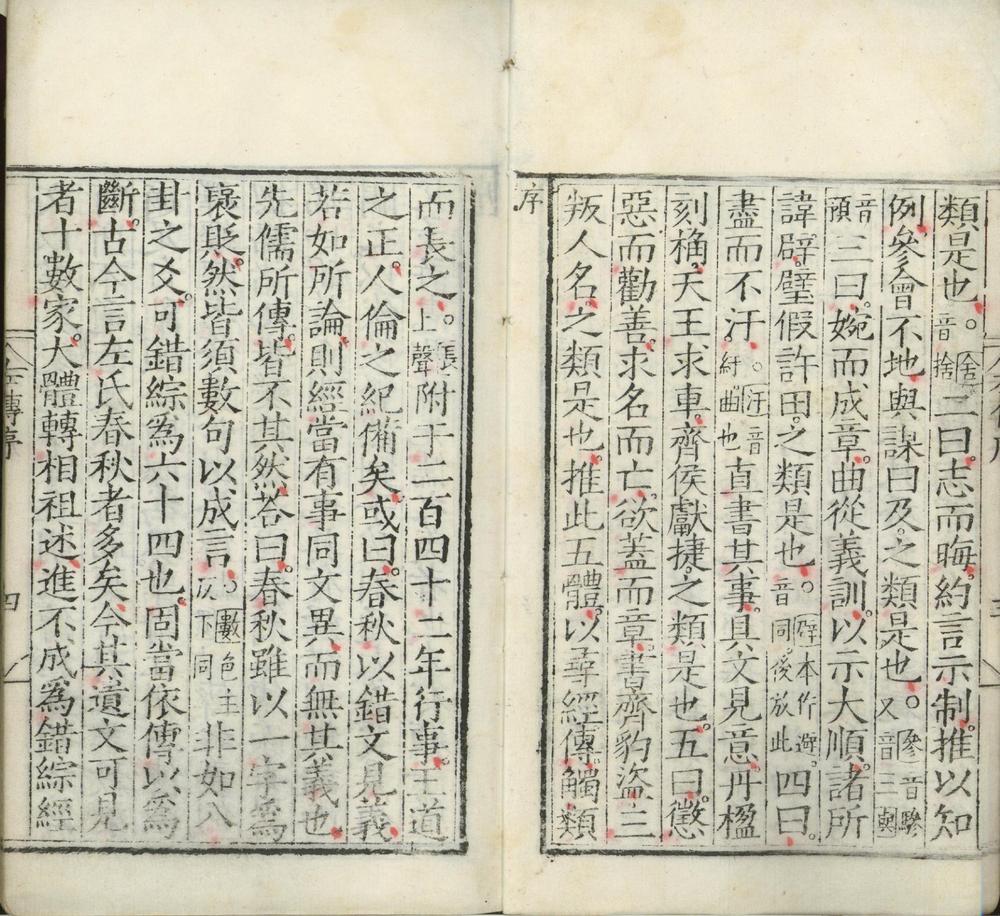 類是也。舍音捨二曰。志而晦。約言示制。推以知
例。參會不地。與謀曰及。之類是也。參音驂又音三與
音預三曰。婉而成章。曲從義訓。以示大順。諸所
諱辟。璧假許田。之類是也。辟本作避音同後放此四曰。
盡而不汙。汙音紆曲也直書其事。具文見意。丹楹
刻桷。天王求車。齊侯獻捷。之類是也。五曰。懲
惡而勸善。求名而亡。欲蓋而章。書齊豹盜三
叛人名。之類是也。推此五體。以尋經傳。觸類
序
而長之。長上聲附于二百四十二年行事。王道
之正。人倫之紀備矣。或曰。春秋以錯文見義。
若如所論。則經當有事同文異而無其義也。
先儒所傳。皆不其然。答曰。春秋雖以一字爲
褒貶。然皆須數句以成言。數色主反下同非如八
卦之爻。可錯綜爲六十四也。固當依傳以爲
斷。古今言左氏春秋者多矣。今其遺文可見
者十數家。大體轉相祖述。進不成爲錯綜經
左傳序
四